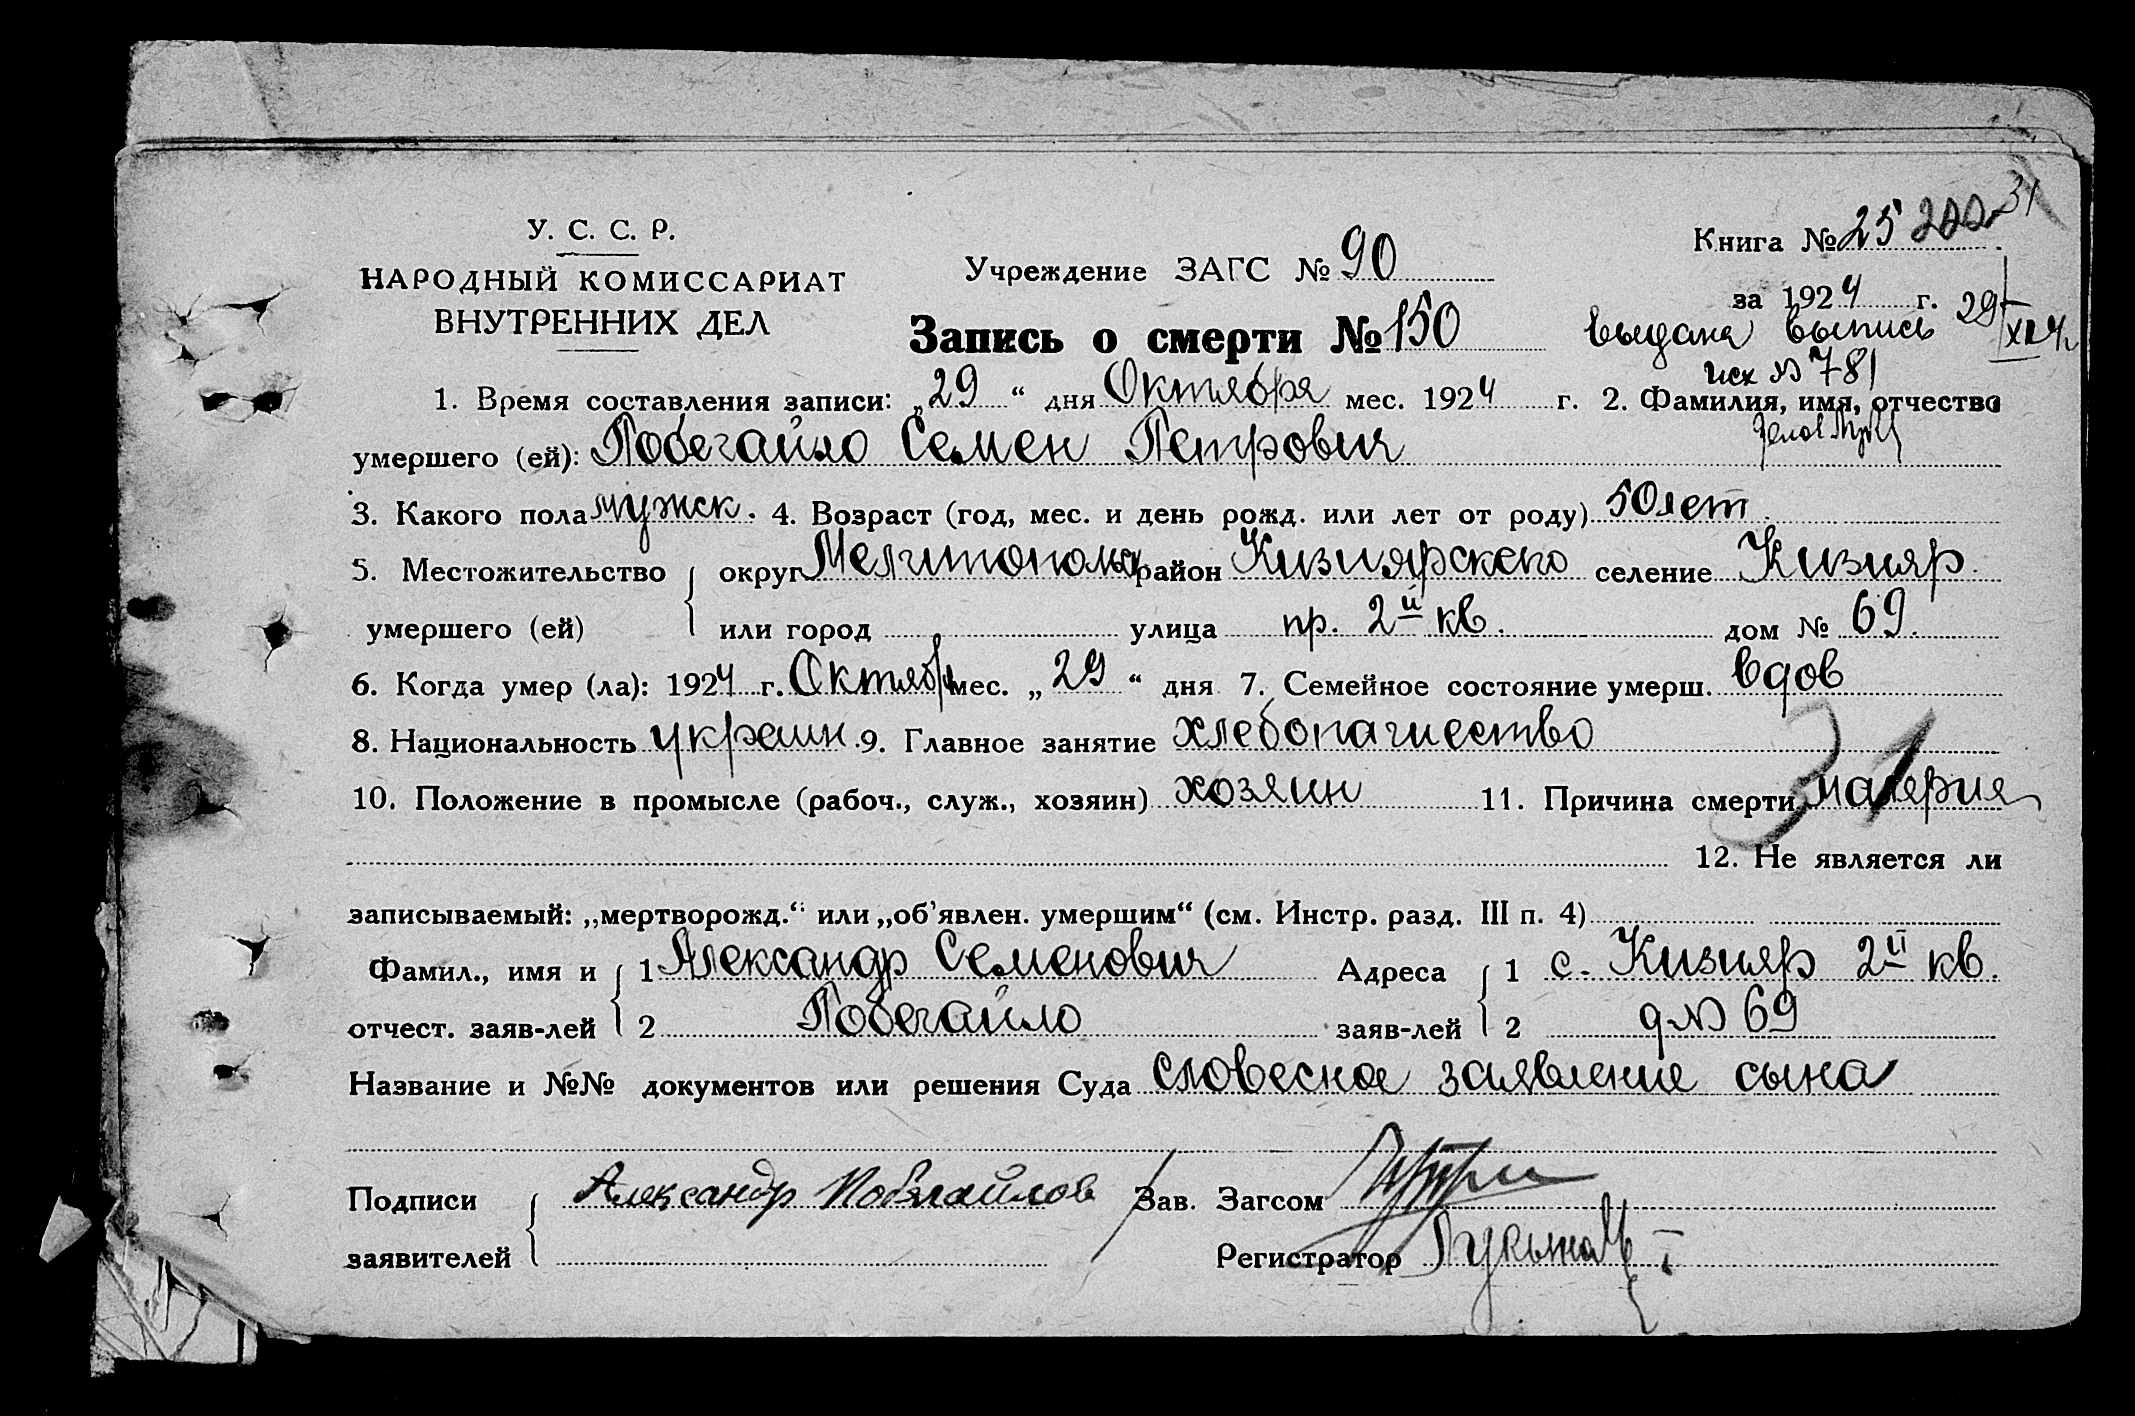 31
У. С. С. Р.
НАРОДНЫЙ КОМИССАРИАТ
ВНУТРЕННИХ ДЕЛ
Учреждение ЗАГС № 90
Книга № 25
за 1924 г.
Запись о смерти № 150
выдана выпись 29/XII 24
исх № 781
1. Время составления записи: „29“ дня Октября мес. 1924 г. 2. Фамилия, имя, отчество
умершего (ей): Побегайло Семен Петрович
3. Какого пола мужск. 4. Возраст (год, мес. и день рожд. или лет от роду) 50 лет
5. Местожительство округ Мелитопольск район Кизиярского селение Кизияр
умершего (ей) или город улица пр. 2й кв. дом № 69.
6. Когда умер (ла): 1924 г. Октября мес. „29“ дня 7. Семейное состояние умерш. вдов
8. Национальность украин. 9. Главное занятие хлебопашество
31
10. Положение в промысле (рабоч., служ., хозяин) хозяин 11. Причина смерти малерия
12. Не является ли
записываемый: „мертворожд.“ или „об’явлен. умершим“ (см. Инстр. разд. III п. 4)
Фамил., имя и 1 Александр Семенович Адреса 1 с. Кизияр 2й кв.
отчест. заяв-лей 2 Побегайло заяв-лей 2 д № 69
Название и №№ документов или решения Суда словесное заявление сына
Подписи Александр Побегайлов Зав. Загсом
заявителей Регистратор